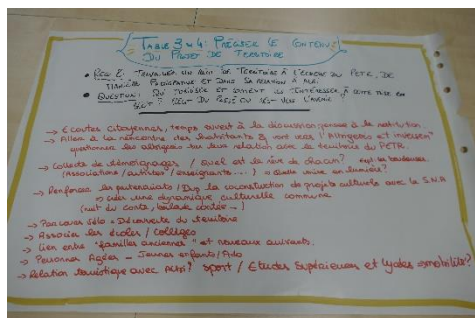 TABLE 3 & 4 : PRÉCISER LE CONTENU
DU PROJET DE TERRITOIRE
TRAVAILLER UN RÉCIT DE TERRITOIRE À L'ÉCHELLE DU PETR, DE
MANIÈRE PROSPECTIVE ET DANS SA RELATION À ALBI.
QUESTION : QUI MOBILISER ET COMMENT LES INTÉRESSER À CETTE MISE EN
RÉCIT ? RÉCIT DU PASSÉ OU RÉCIT VERS L'AVENIR
→ Ecoutes citoyennes, temps ouvert à la discussion
→ Aller à la rencontre des habitants "Albigeois et inversement"
questionner les albigeois sur leur relation avec le territoire du PETR.
→ Collecte de témoignages / Quel est le rêve de chacun ?
(Associations / artistes / enseignants ...)
→ Renforcer les partenariats / la coconstruction de projets culturels avec la S.N.A
→ créer une dynamique culturelle commune
(nuit du conte / balade contée -)
→ Parcours vélo - Découverte du territoire
→ Associer les écoles / collèges
→ Lien entre "familles anciennes" et nouveaux arrivants.
→ Personnes Agées - Jeunes enfants / Ado
→ Relation touristique avec Albi ? Sport / Etudes Supérieures et lycées mobilité ?